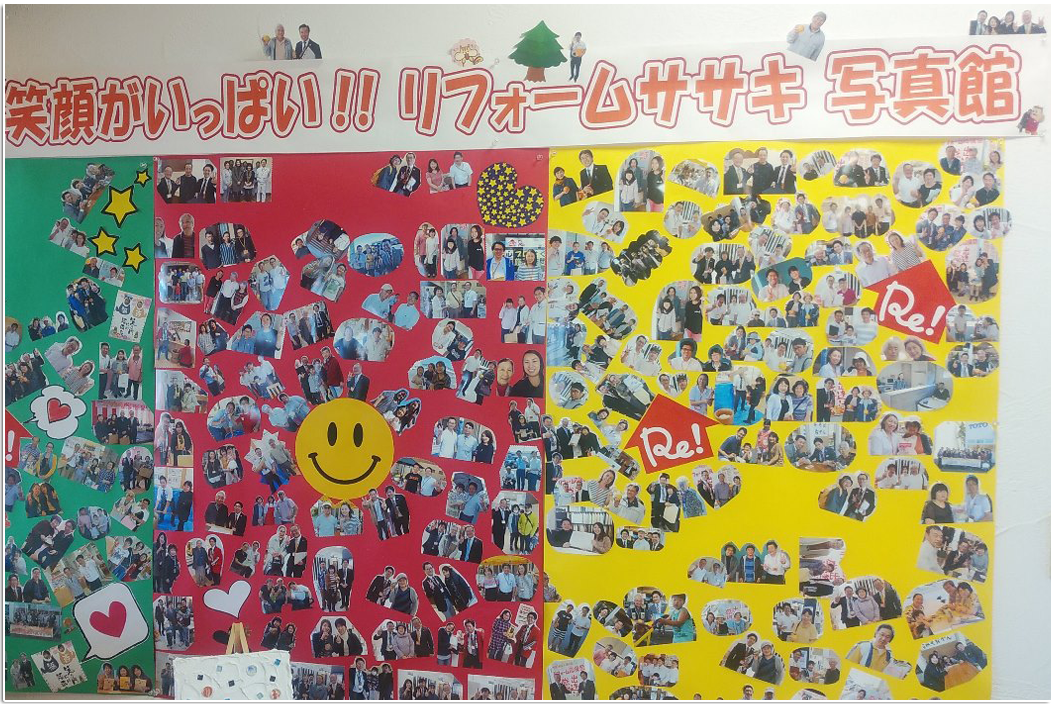 笑顔がいっぱい!! リフォームササキ 写真館
Re!
Re!
TOTO